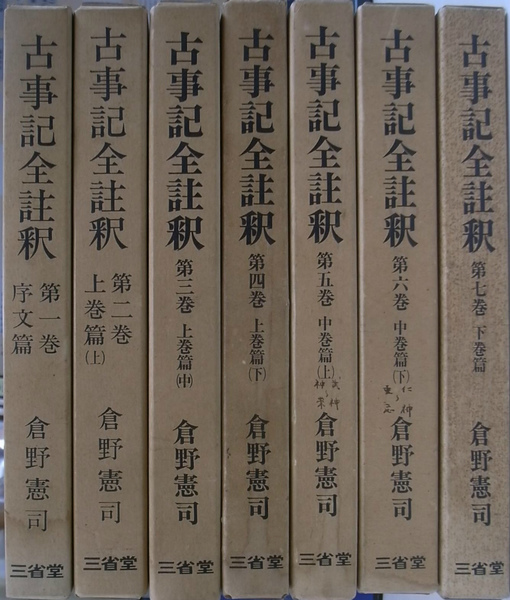 古事記全註釈
第一巻
序文篇
倉野憲司
三省堂
古事記全註釈
第二巻
上巻篇(上)
倉野憲司
三省堂
古事記全註釈
第三巻 上巻篇(中)
倉野憲司
三省堂
古事記全註釈
第四巻 上巻篇(下)
倉野憲司
三省堂
古事記全註釈
第五巻 中巻篇(上)
倉野憲司
三省堂
古事記全註釈
第六巻 中巻篇(下)
倉野憲司
三省堂
古事記全註釈
第七巻 下巻篇
倉野憲司
三省堂